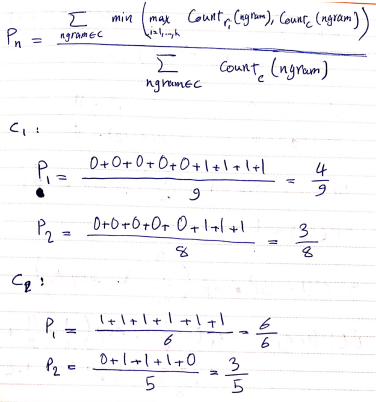 Pn = Σ ngram∈C min (max i=1,..,k Count ri (ngram), Count c (ngram)) / Σ ngram∈C Count c (ngram)
C1 :
P1 = 0+0+0+0+0+1+1+1+1 / 9 = 4/9
P2 = 0+0+0+0+0+1+1+1 / 8 = 3/8
C2 :
P1 = 1+1+1+1+1+1 / 6 = 6/6
P2 = 0+1+1+1+0 / 5 = 3/5